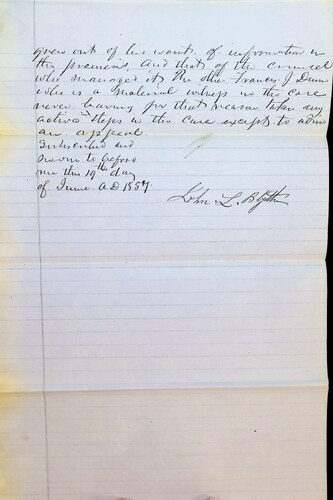 grew out of his want of information in
the premises. And that of the council
who managed it. The other Francis J Dunn
who is a material witness in the case
never having for that reason taken any
active steps in the case except to
an appeal
Subscribed and
sworn to before
me this 19th day
of June A.D 1857
John L. Blythe